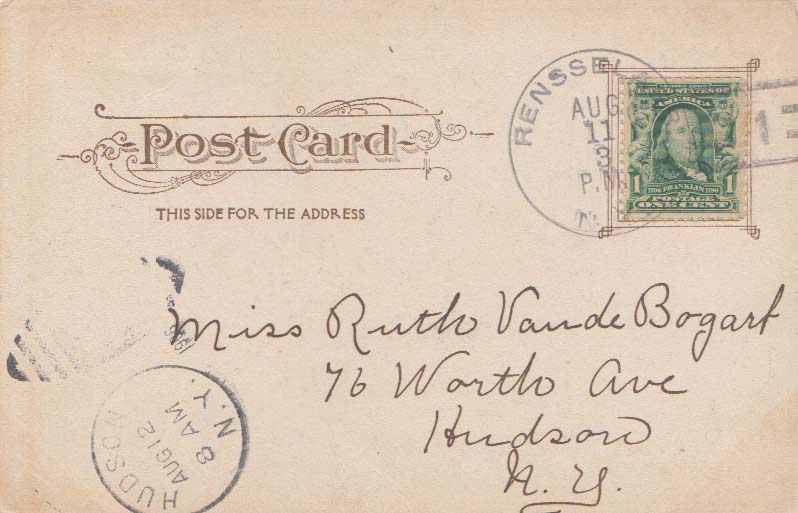 Post Card
THIS SIDE FOR THE ADDRESS
AUG
11
3
P.M.
N.
UNITED STATES OF
AMERICA
1 1706 FRANKLIN 1790 1
POSTAGE
ONE CENT
1
Miss Ruth VandeBogart
76 Worth Ave
Hudson
N.Y.
HUDSON
AUG 12
8 AM
N.Y.